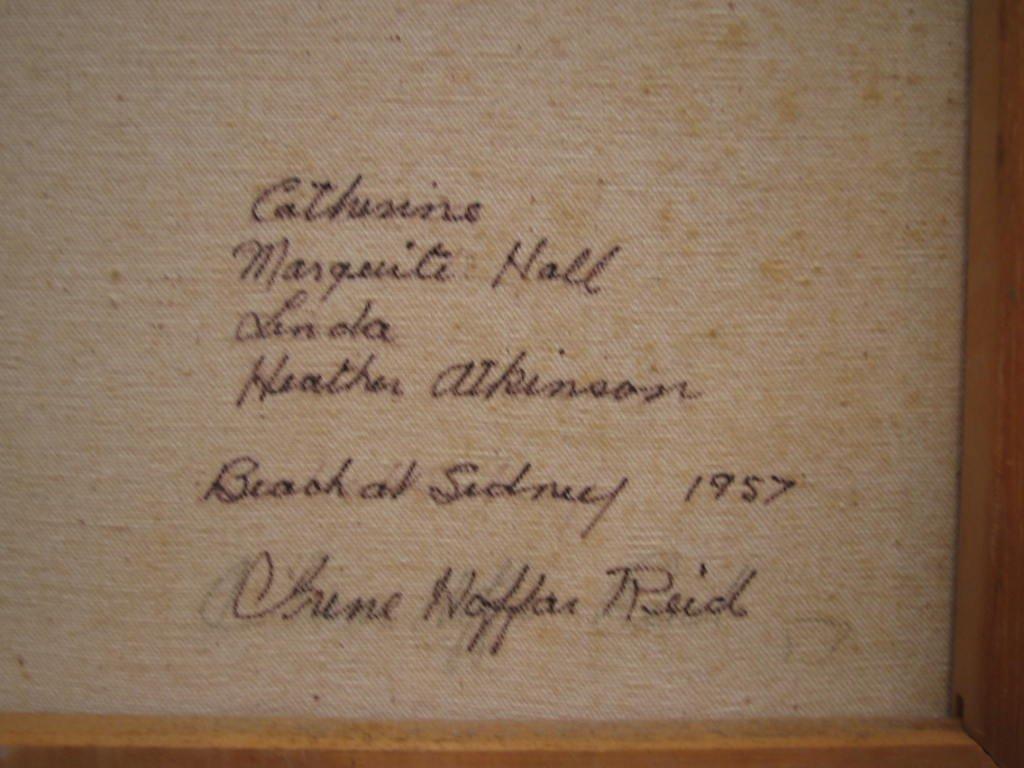 Catherine
Marguite Hall
Linda
Heather Atkinson
Beach at Sidney 1957
Irene Hoffar Reid